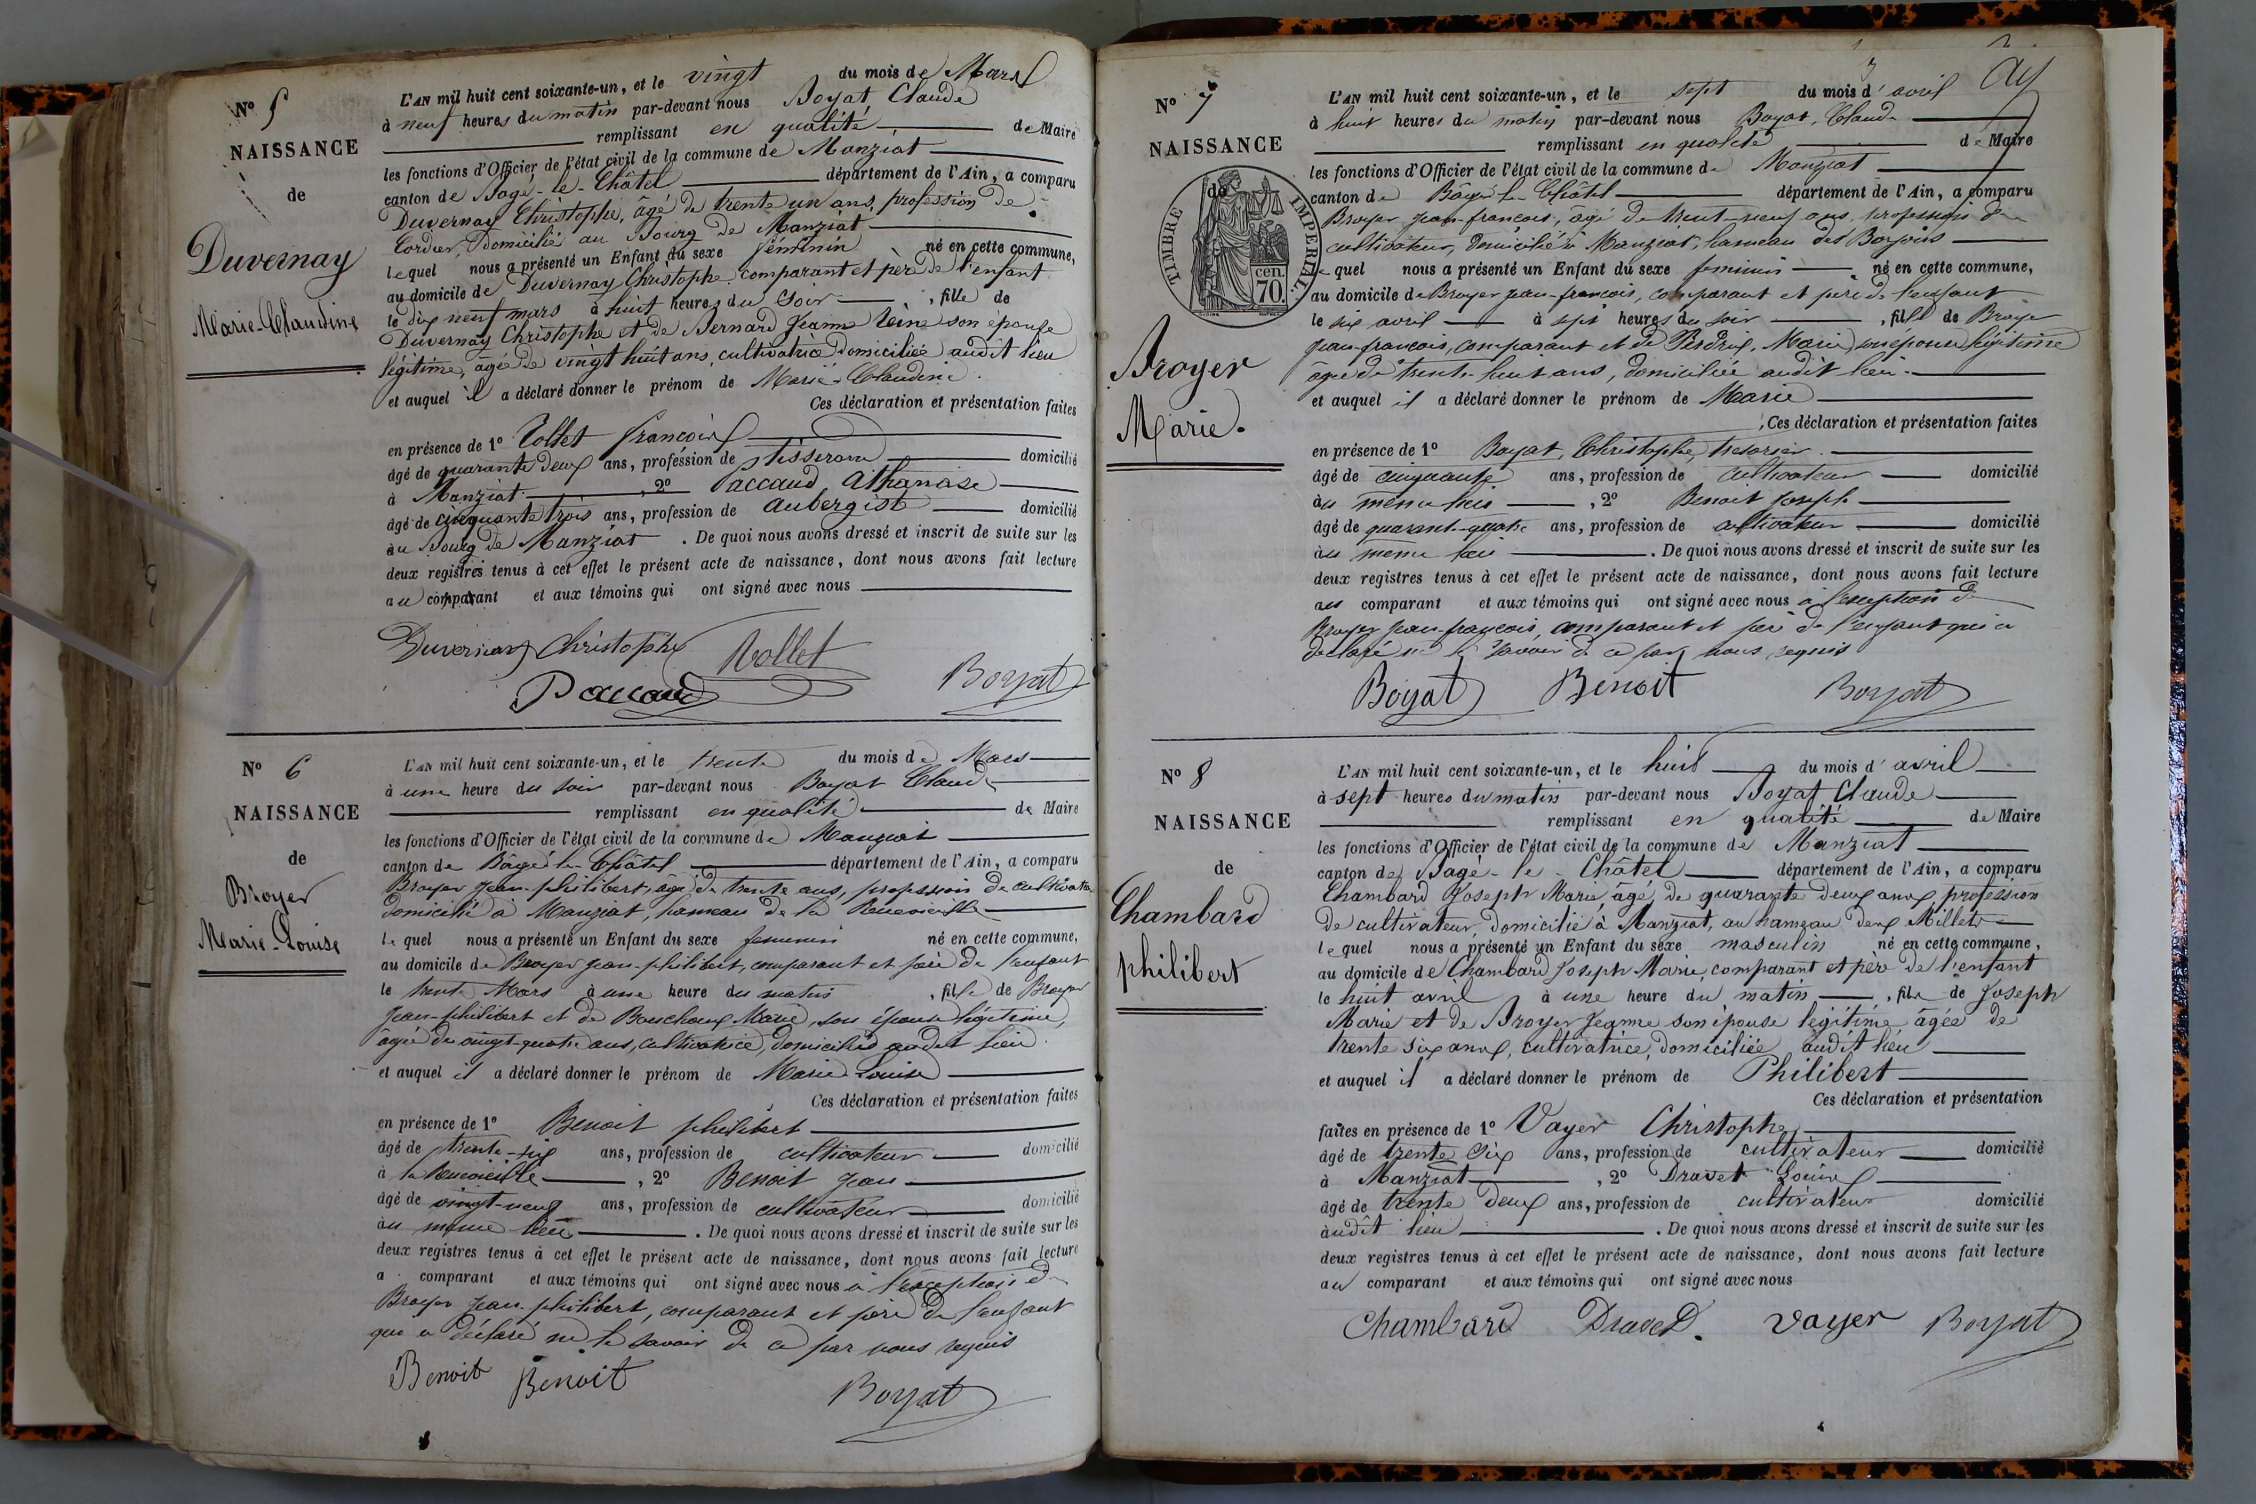 Nº 5
NAISSANCE
de
Duvernay
Marie-Claudine
L'AN mil huit cent soixante-un, et le vingt du mois de Mars
à neuf heures du matin par-devant nous Boyat, Claude
remplissant en qualité de Maire
les fonctions d'Officier de l'état civil de la commune de Manziat
canton de Bagé-le-Châtel département de l'Ain, a comparu
Duvernay Christophe, âgé de trente un ans, profession de
Cordier, domicilié au Bourg de Manziat
lequel nous a présenté un Enfant du sexe féminin né en cette commune,
au domicile de Duvernay Christophe comparant et père de l'enfant
le dix neuf mars à huit heures du soir, fille de
Duvernay Christophe et de Bernard Jeanne Reine son épouse
légitime, âgée de vingt huit ans, cultivatrice domiciliée audit lieu
et auquel il a déclaré donner le prénom de Marie-Claudine.
Ces déclaration et présentation faites
en présence de 1º Vollet françois
âgé de quarante deux ans, profession de tisserand domicilié
à Manziat, 2º Paccaud Athanase
âgé de cinquante trois ans, profession de aubergiste domicilié
au Bourg de Manziat. De quoi nous avons dressé et inscrit de suite sur les
deux registres tenus à cet effet le présent acte de naissance, dont nous avons fait lecture
au comparant et aux témoins qui ont signé avec nous
Duvernay Christophe Vollet
Paccaud Boyat
Nº 6
NAISSANCE
de
Broyer
Marie-Louise
L'AN mil huit cent soixante-un, et le trente du mois de Mars
à une heure du soir par-devant nous Boyat Claude
remplissant en qualité de Maire
les fonctions d'Officier de l'état civil de la commune de Manziat
canton de Bâgé-le-Châtel département de l'Ain, a comparu
Broyer Jean-philibert, âgé de trente ans, profession de cultivateur
domicilié à Manziat, hameau de la
le quel nous a présenté un Enfant du sexe feminin né en cette commune,
au domicile de Broyer Jean-philibert, comparant et père de l'enfant
le trente Mars à une heure du matin, fille de Broyer
Jean-philibert et de Bouchoux Marie, son épouse légitime,
âgée de vingt-quatre ans, cultivatrice, domiciliés audit lieu.
et auquel il a déclaré donner le prénom de Marie-Louise
Ces déclaration et présentation faites
en présence de 1º Benoit philibert
âgé de trente-six ans, profession de cultivateur domicilié
à la, 2º Benoit Jean
âgé de vingt-neuf ans, profession de cultivateur domicilié
au meme lieu. De quoi nous avons dressé et inscrit de suite sur les
deux registres tenus à cet effet le présent acte de naissance, dont nous avons fait lecture
a comparant et aux témoins qui ont signé avec nous à l'exception de
Broyer Jean-philibert, comparant et père de l'enfant
qui a déclaré ne le savoir de ce par nous requis
Benoit Benoit Boyat
Nº 7
NAISSANCE
de
TIMBRE IMPERIAL
cen.
70.
Broyer
Marie.
L'AN mil huit cent soixante-un, et le sept du mois d'avril
à huit heures du matin par-devant nous Boyat, Claude
remplissant en qualité de Maire
les fonctions d'Officier de l'état civil de la commune de Manziat
canton de Bâgé-le-Châtel département de l'Ain, a comparu
Broyer Jean-françois, âgé de trent-neuf ans, profession de
cultivateur, domicilié à Manziat, hameau des
le quel nous a présenté un Enfant du sexe feminin né en cette commune,
au domicile de Broyer Jean-françois, comparant et père de l'enfant
le six avril à sept heures du soir, fille de Broyer
Jean-françois, comparant et de Perdrix, Marie, son épouse légitime
âgée de trente-huit ans, domiciliée audit lieu.
et auquel il a déclaré donner le prénom de Marie
Ces déclaration et présentation faites
en présence de 1º Boyat, Christophe, tresorier.
âgé de cinquante ans, profession de cultivateur domicilié
au meme lieu, 2º Benoit Joseph
âgé de quarant-quatre ans, profession de cultivateur domicilié
au meme lieu. De quoi nous avons dressé et inscrit de suite sur les
deux registres tenus à cet effet le présent acte de naissance, dont nous avons fait lecture
au comparant et aux témoins qui ont signé avec nous à l'exception de
Broyer Jean-françois, comparant et père de l'enfant qui a
déclaré ne le savoir de ce par nous requis
Boyat Benoit Boyat
Nº 8
NAISSANCE
de
Chambard
philibert
L'AN mil huit cent soixante-un, et le huit du mois d'avril
à sept heures du matin par-devant nous Boyat Claude
remplissant en qualité de Maire
les fonctions d'Officier de l'état civil de la commune de Manziat
canton de Bagé-le-Châtel département de l'Ain, a comparu
Chambard Joseph Marie, âgé de quarante deux ans, profession
de cultivateur, domicilié à Manziat, au hameau des Millets
lequel nous a présenté un Enfant du sexe masculin né en cette commune,
au domicile de Chambard Joseph Marie, comparant et père de l'enfant
le huit avril à une heure du matin, fils de Joseph
Marie et de Broyer Jeanne son épouse légitime, âgée de
trente six ans, cultivatrice, domiciliée audit lieu
et auquel il a déclaré donner le prénom de Philibert
Ces déclaration et présentation
faites en présence de 1º Vayer Christophe
âgé de trente six ans, profession de cultivateur domicilié
à Manziat, 2º Dravet Louis
âgé de trente deux ans, profession de cultivateur domicilié
audit lieu. De quoi nous avons dressé et inscrit de suite sur les
deux registres tenus à cet effet le présent acte de naissance, dont nous avons fait lecture
au comparant et aux témoins qui ont signé avec nous
Chambard Dravet. Vayer Boyat